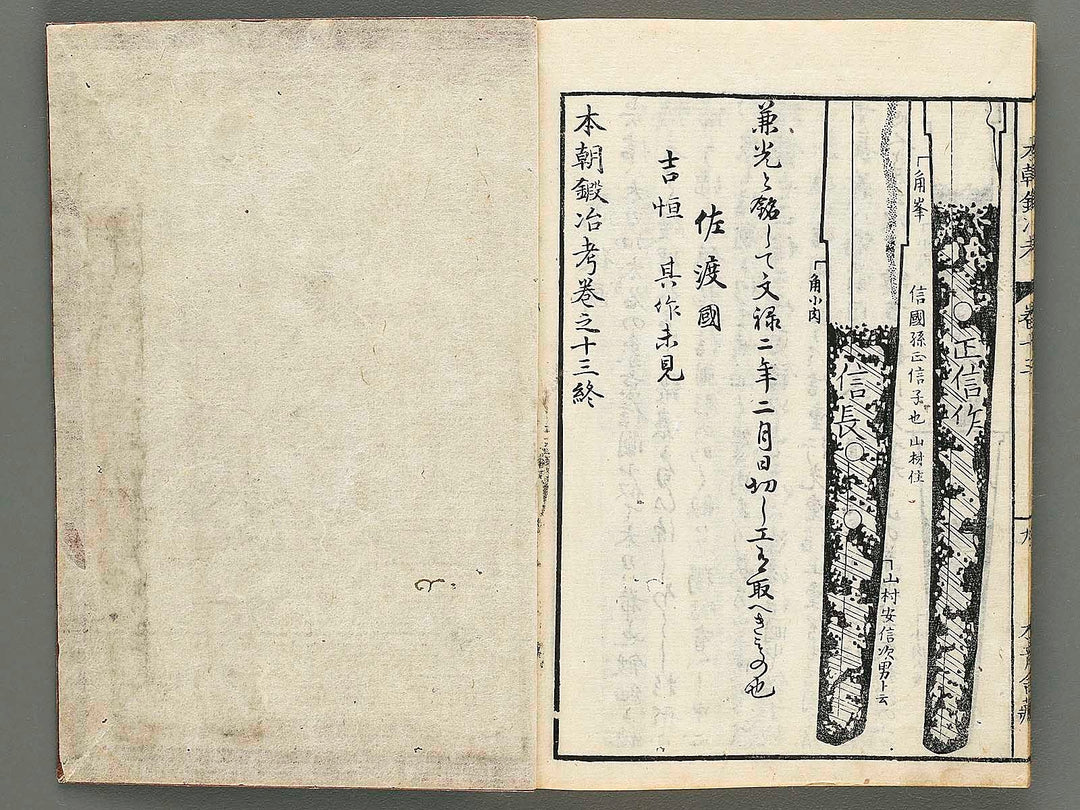 本朝鍛冶考 卷十三 九
正信作
角峯
信國孫正信子也山村住
信長
山村安信次男ト云
角小肉
兼光と銘して文禄二年二月日切し工者取へきもの也
佐渡國
吉恒 其作未見
本朝鍛冶考卷之十三終